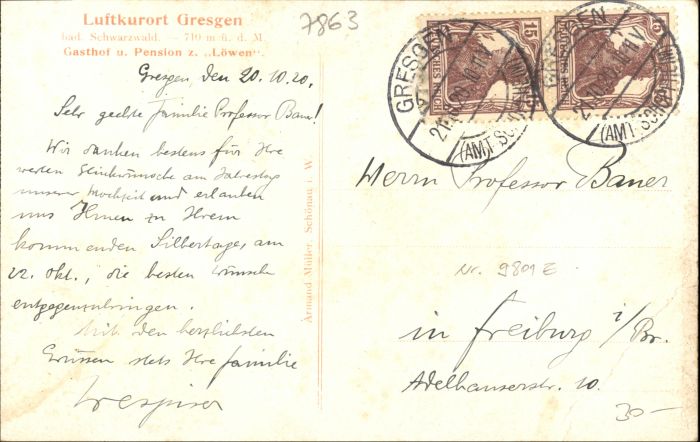 Luftkurort Gresgen
bad. Schwarzwald. — 710 m ü. d. M.
Gasthof u. Pension z. „Löwen“.
7863
Gresgen, den 20.10.20.
Sehr geehrte Familie Professor Bauer!
Wir danken bestens für Ihre
werten Glückwünsche am Jahrestag
unserer Hochzeit und erlauben
uns Ihnen zu Ihrem
kommenden Silbertage, am
22. Okt., die besten Wünsche
entgegenzubringen.
Mit den herzlichsten
Grüssen stets Ihre Familie
Armand Müller, Schönau i. W.
GRESGEN
(AMT SCHOPFHEIM)
15
GRESGEN
(AMT SCHOPFHEIM)
Herrn Professor Bauer
Nr. 9801 E
in Freiburg i/Br.
Adelhauserstr. 10.
30-